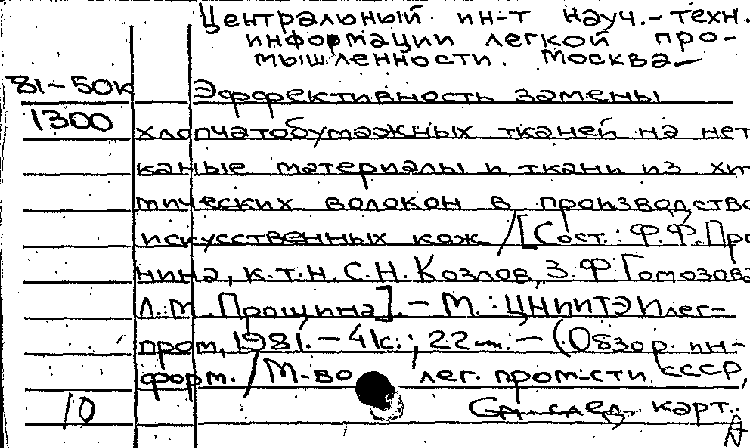 Центральный ин-т науч.-техн.
информации легкой про-
мышленности. Москва
81-50к Эффективность замены
1300 хлопчатобумажных тканей на нет
каные материалы и ткани из хи
мических волокон в производстве
искусственных кож / [Сост.: Ф.Ф. Про
нина, к.т.н. С.Н. Козлов, З.Ф. Гомозова
Л.М. Прошина]. - М.: ЦНИИТЭИлег-
пром, 1981. - 41с.; 22 см. - (Обзор. ин-
форм. / М-во лег. пром-сти СССР,
10 См. след. карт.